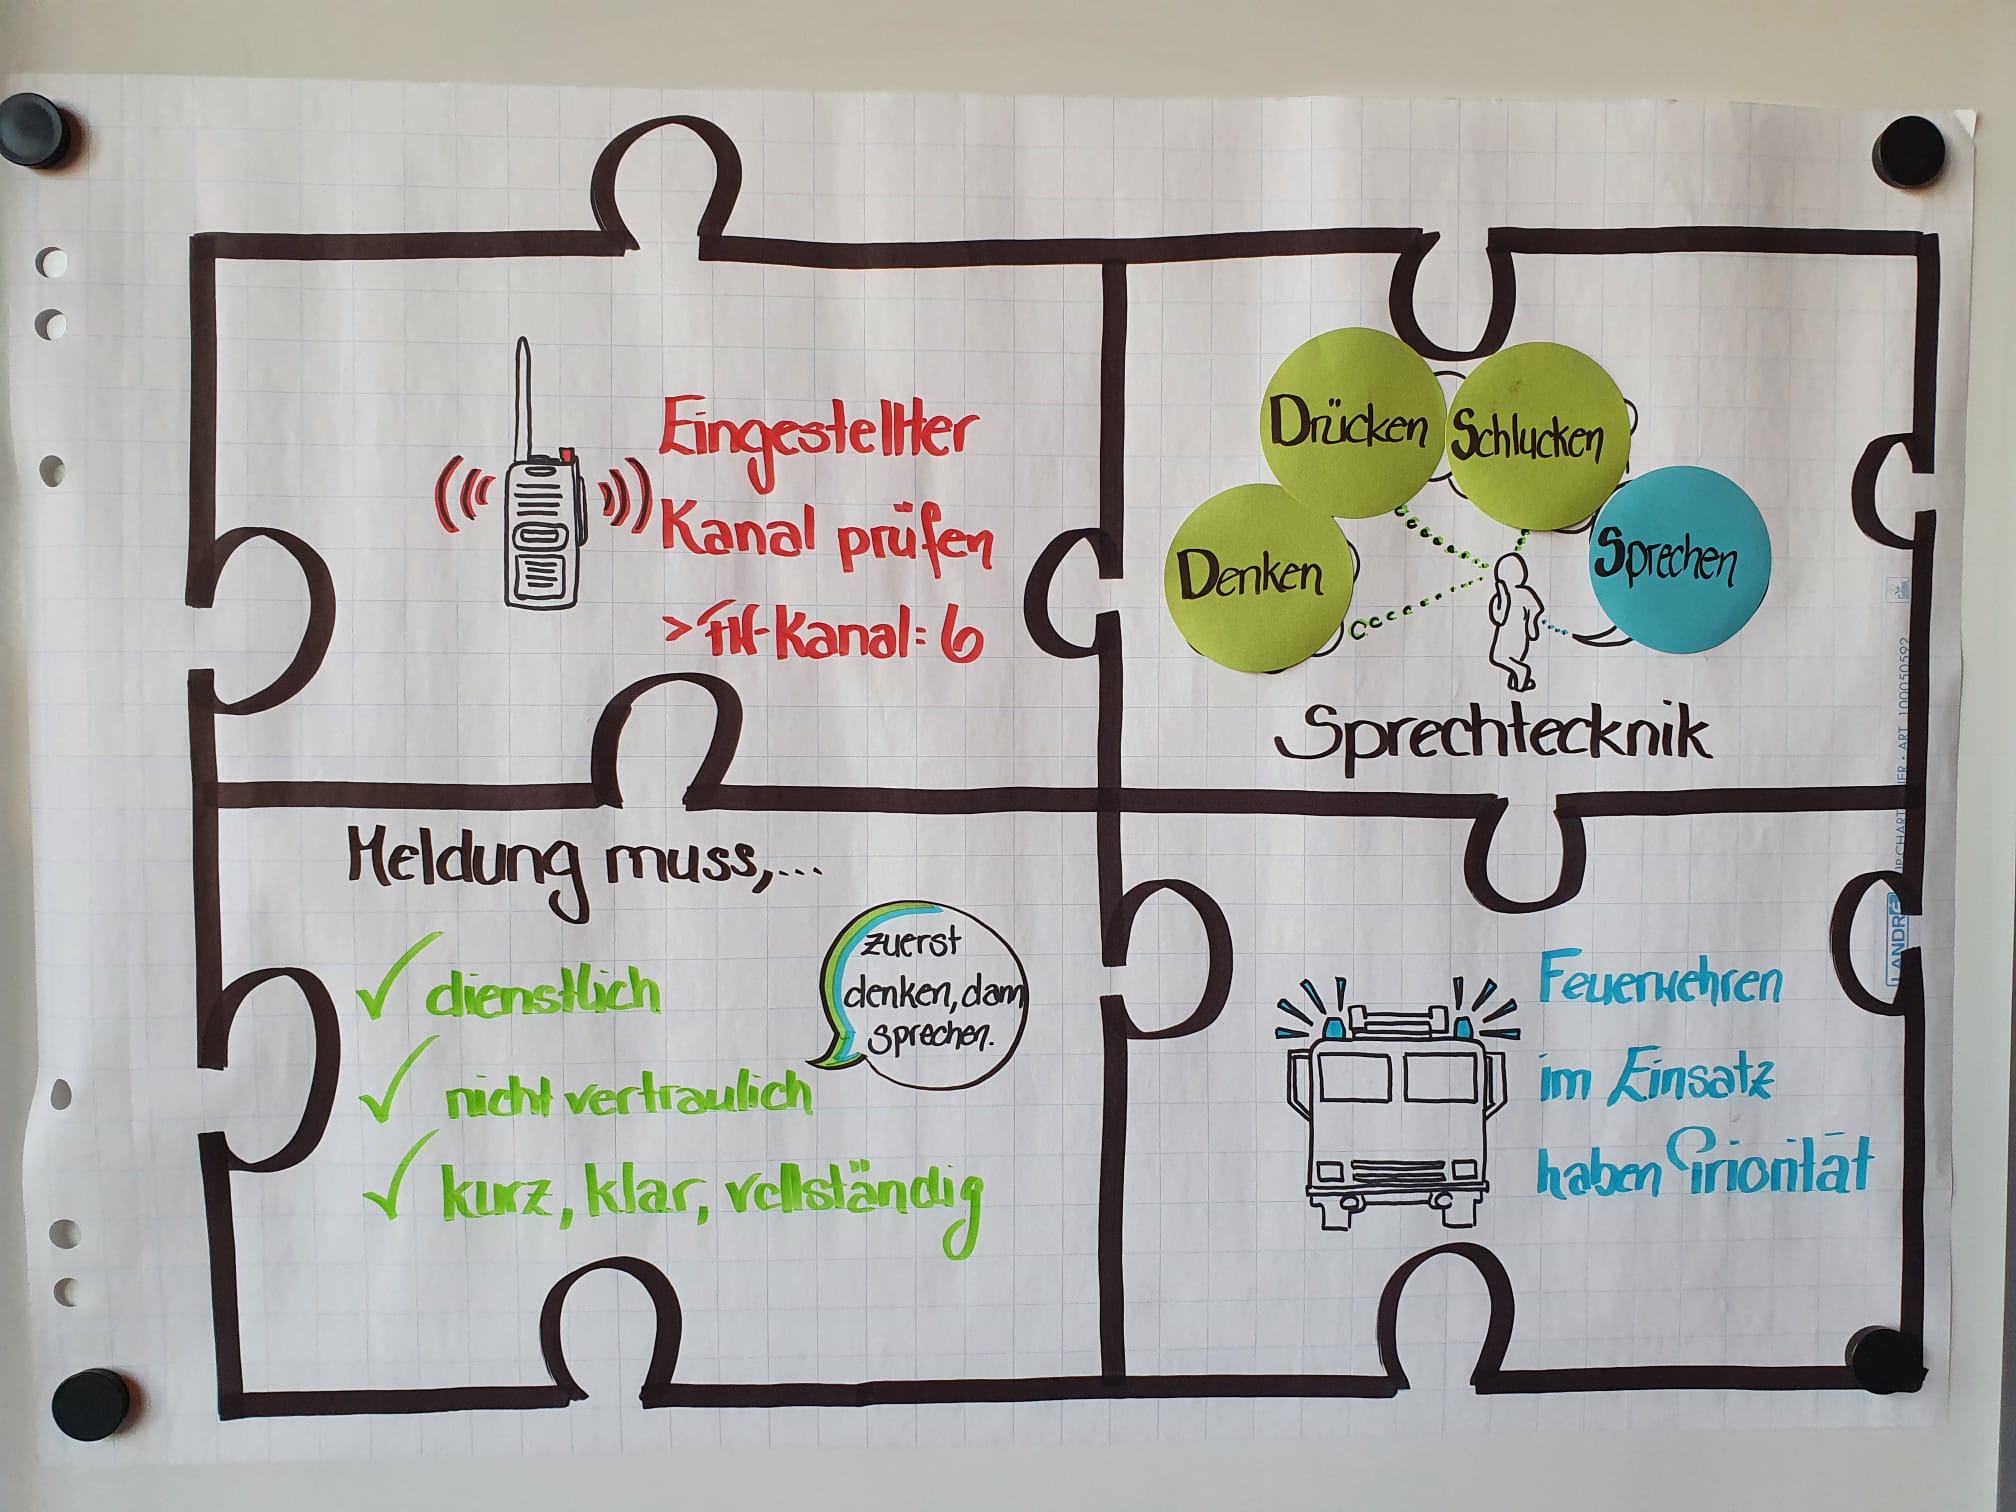 Eingestellter
Kanal prüfen
> FW-Kanal: 6
Drücken
Schlucken
Denken
Sprechen
Sprechtecknik
Meldung muss,...
✓ dienstlich
✓ nicht vertraulich
✓ kurz, klar, vollständig
zuerst
denken, dann
sprechen.
Feuerwehren
im Einsatz
haben Priorität
ART 10050592
LANDRÉ